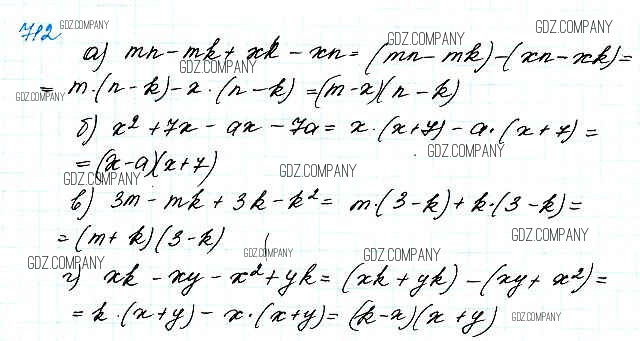 712 GDZ.COMPANY GDZ.COMPANY
GDZ.COMPANY
а) mn - mk + xk - xn = (mn - mk) - (xn - xk) =
GDZ.COMPANY
GDZ.COMPANY = m·(n - k) - x·(n - k) = (m - x)(n - k)
б) x² + 7x - ax - 7a = x·(x + 7) - a·(x + 7) =
GDZ.COMPANY
= (x - a)(x + 7)
GDZ.COMPANY GDZ.COMPANY
в) 3m - mk + 3k - k² = m·(3 - k) + k·(3 - k) =
= (m + k)(3 - k) GDZ.COMPANY
GDZ.COMPANY GDZ.COMPANY GDZ.COMPANY
г) xk - xy - x² + yk = (xk + yk) - (xy + x²) =
= k·(x + y) - x·(x + y) = (k - x)(x + y) GDZ.COMPANY